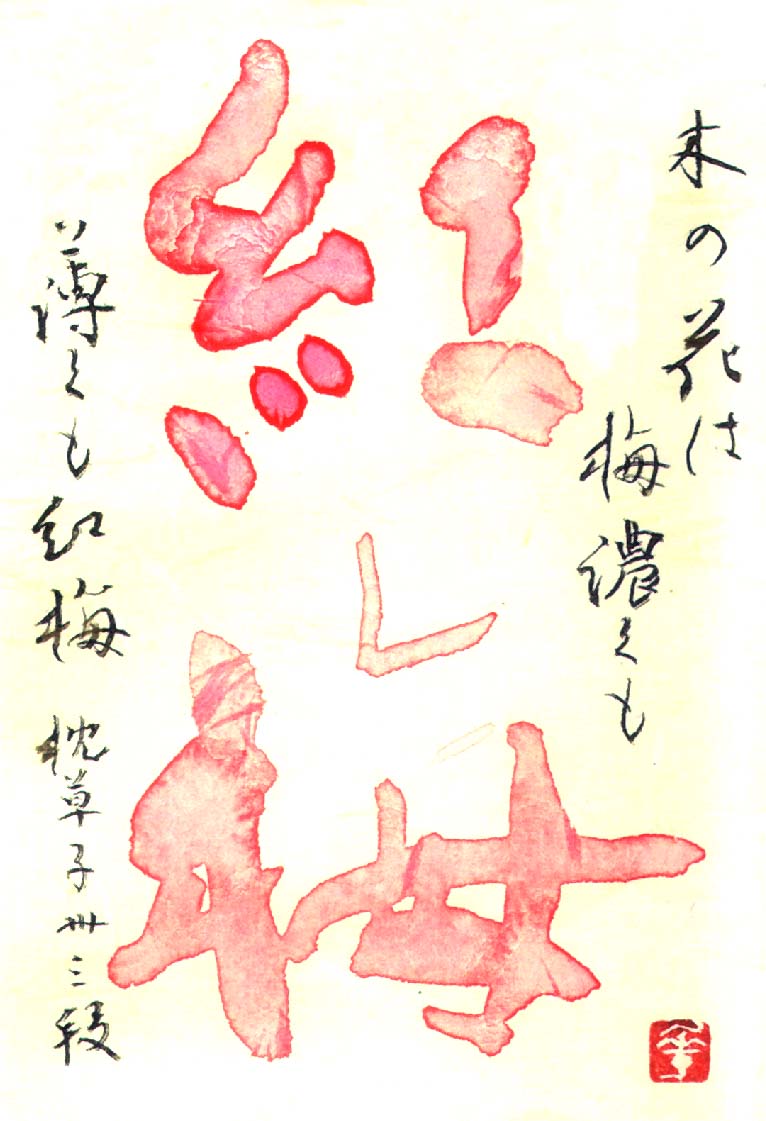 木の花は
梅濃くも
紅梅
薄くも紅梅 枕草子卅三段